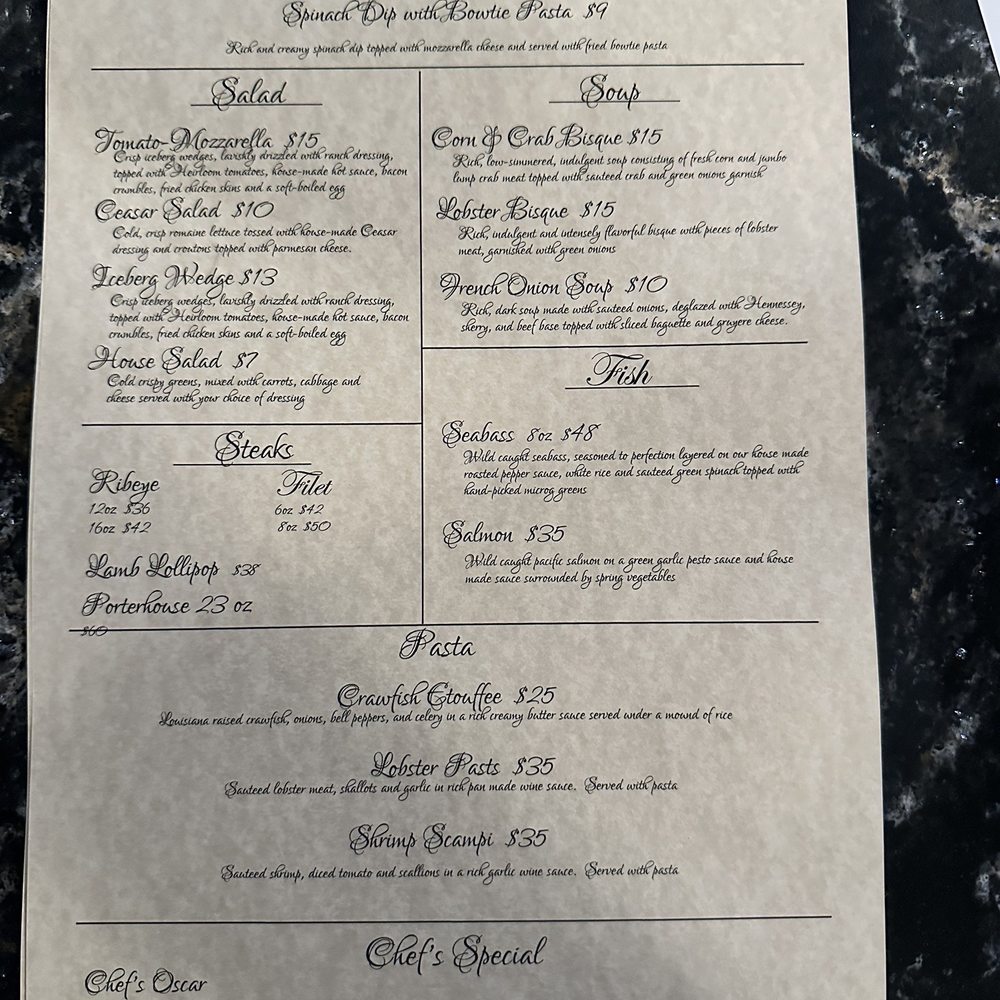 Spinach Dip with Bowtie Pasta $9
Rich and creamy spinach dip topped with mozzarella cheese and served with fried bowtie pasta
Salad
Tomato-Mozzarella $15
Crisp iceberg wedges, lavishly drizzled with ranch dressing,
topped with Heirloom tomatoes, house-made hot sauce, bacon
crumbles, fried chicken skins and a soft-boiled egg
Ceasar Salad $10
Cold, crisp romaine lettuce tossed with house-made Ceasar
dressing and croutons topped with parmesan cheese.
Iceberg Wedge $13
Crisp iceberg wedges, lavishly drizzled with ranch dressing,
topped with Heirloom tomatoes, house-made hot sauce, bacon
crumbles, fried chicken skins and a soft-boiled egg
House Salad $7
Cold crispy greens, mixed with carrots, cabbage and
cheese served with your choice of dressing
Steaks
Ribeye
12oz $36
16oz $42
Filet
6oz $42
8oz $50
Lamb Lollipop $38
Porterhouse 23 oz
$60
Soup
Corn & Crab Bisque $15
Rich, low-simmered, indulgent soup consisting of fresh corn and jumbo
lump crab meat topped with sauteed crab and green onions garnish
Lobster Bisque $15
Rich, indulgent and intensely flavorful bisque with pieces of lobster
meat, garnished with green onions
French Onion Soup $10
Rich, dark soup made with sauteed onions, deglazed with Hennessey,
sherry, and beef base topped with sliced baguette and gruyere cheese.
Fish
Seabass 8oz $48
Wild caught seabass, seasoned to perfection layered on our house made
roasted pepper sauce, white rice and sauteed green spinach topped with
hand-picked microg greens
Salmon $35
Wild caught pacific salmon on a green garlic pesto sauce and house
made sauce surrounded by spring vegetables
Pasta
Crawfish Etouffee $25
Louisiana raised crawfish, onions, bell peppers, and celery in a rich creamy butter sauce served under a mound of rice
Lobster Pasts $35
Sauteed lobster meat, shallots and garlic in rich pan made wine sauce. Served with pasta
Shrimp Scampi $35
Sauteed shrimp, diced tomato and scallions in a rich garlic wine sauce. Served with pasta
Chef's Special
Chef's Oscar